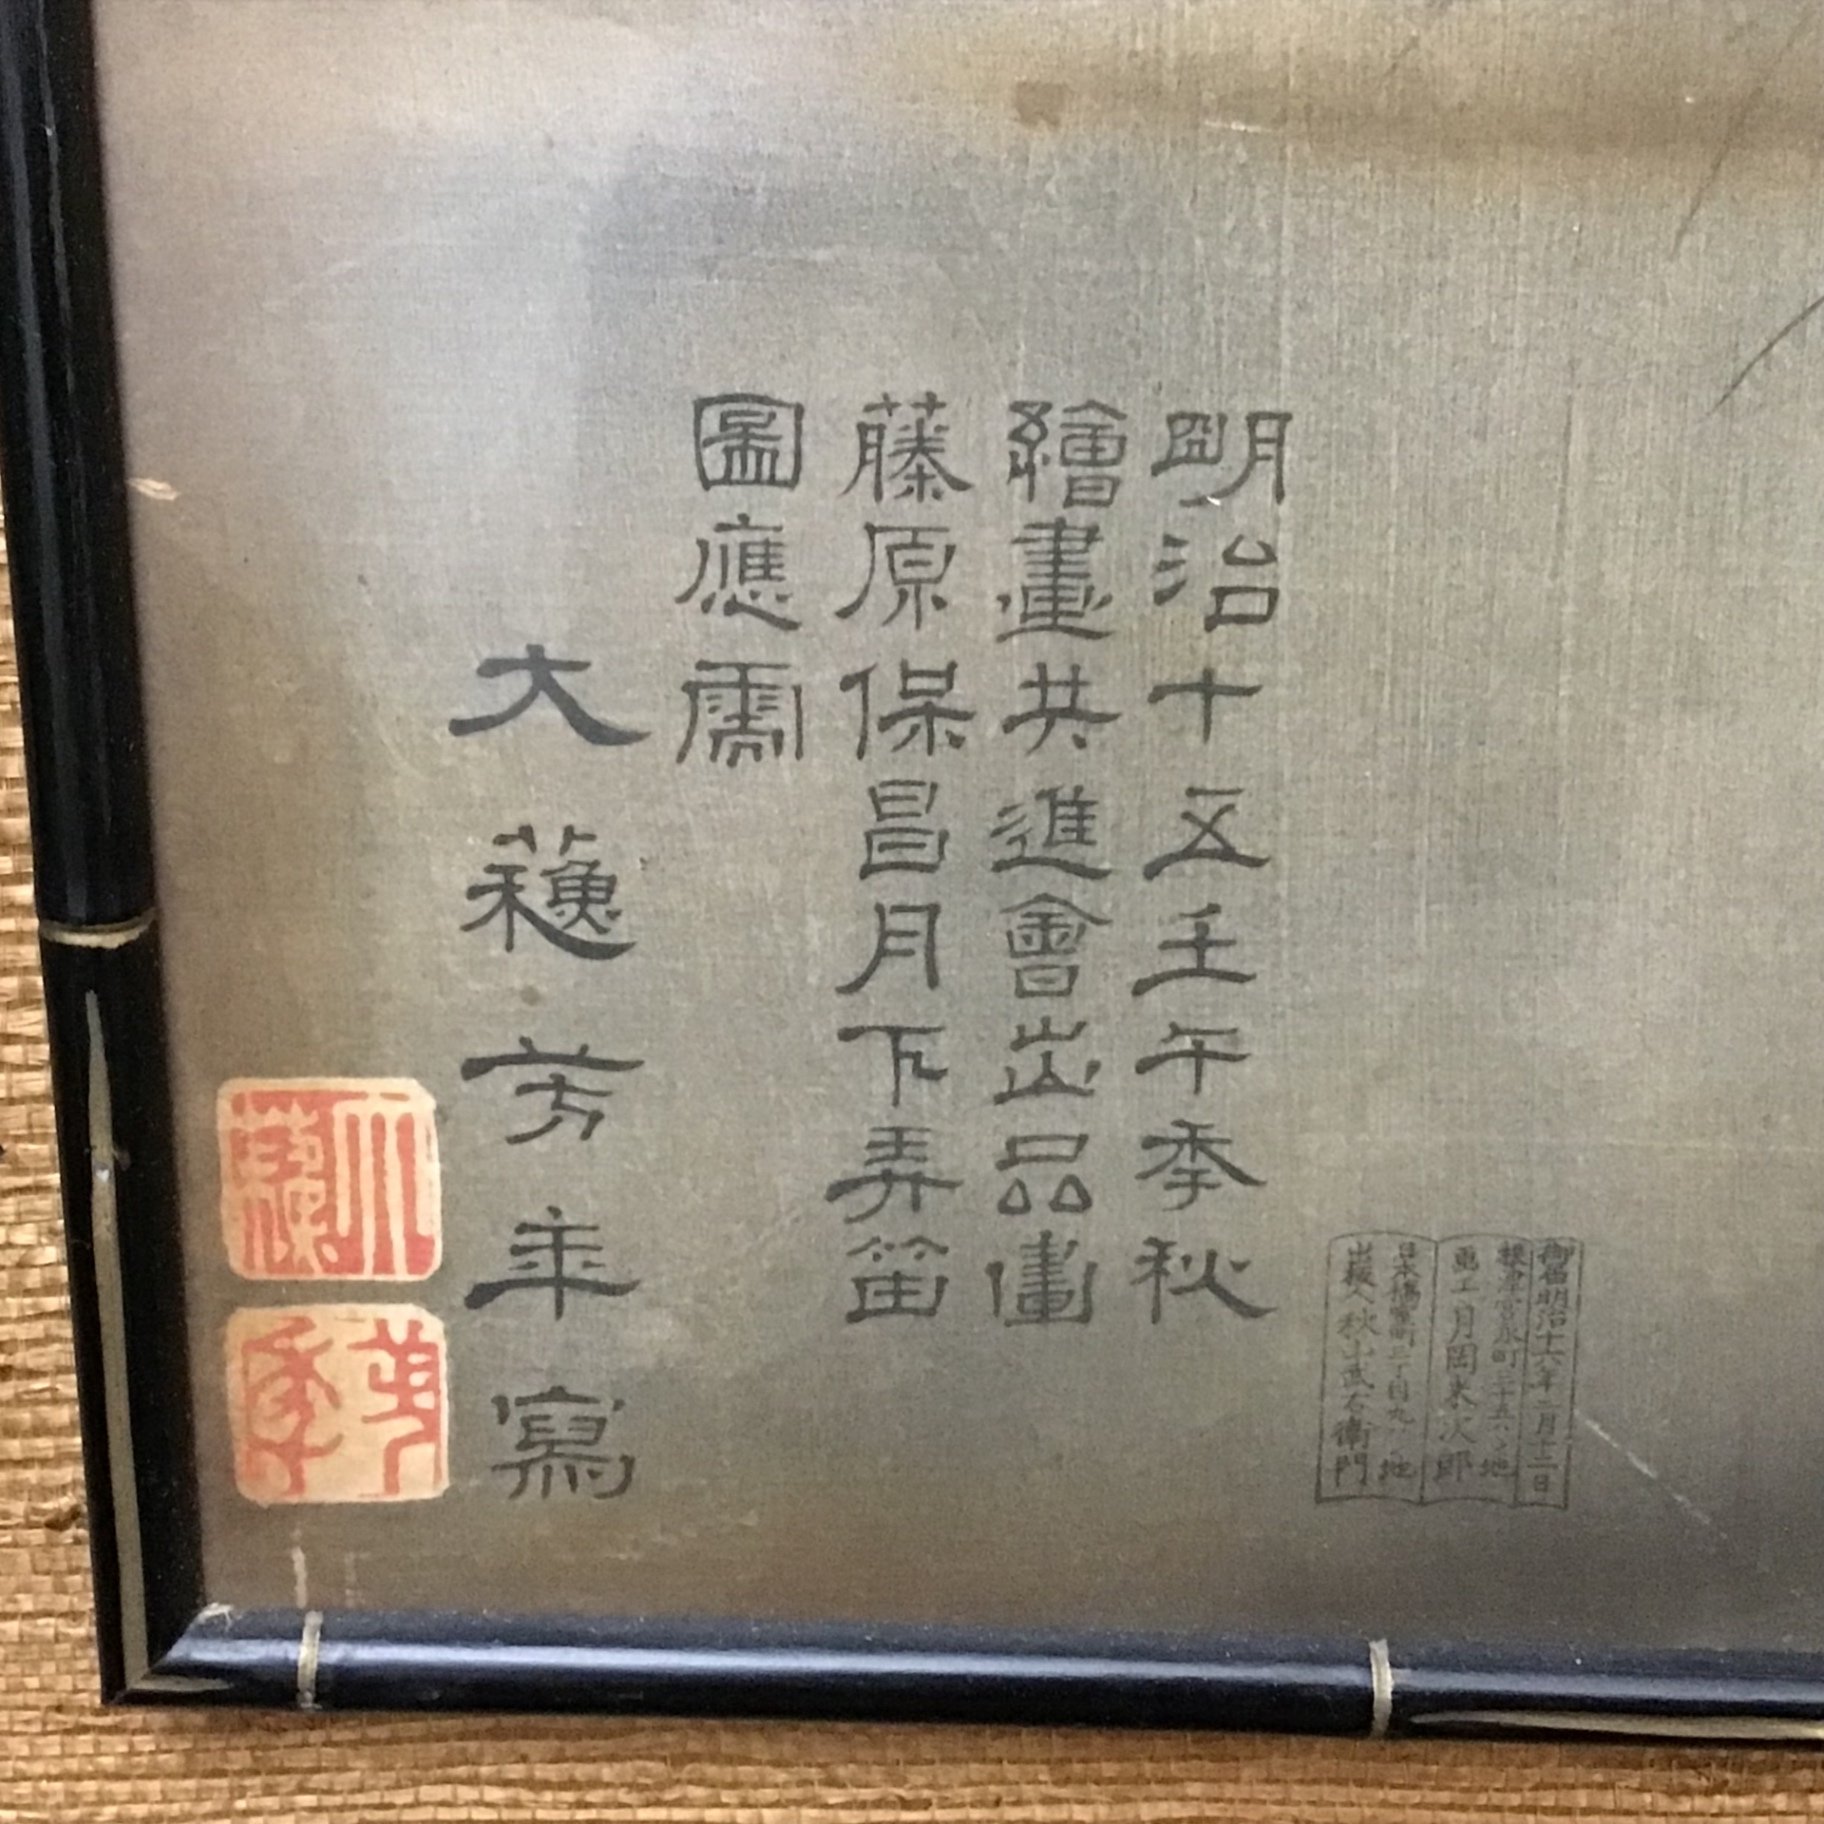 明治十五壬午季秋
繪畫共進會出品畫
藤原保昌月下弄笛
圖應需
大蘓芳年寫
大蘓
芳年
御届明治十六年二月十二日
根津宮永町三十五八〻地
画工月岡米次郎
日本橋室町三丁目九〻地
出板人秋山武右衛門